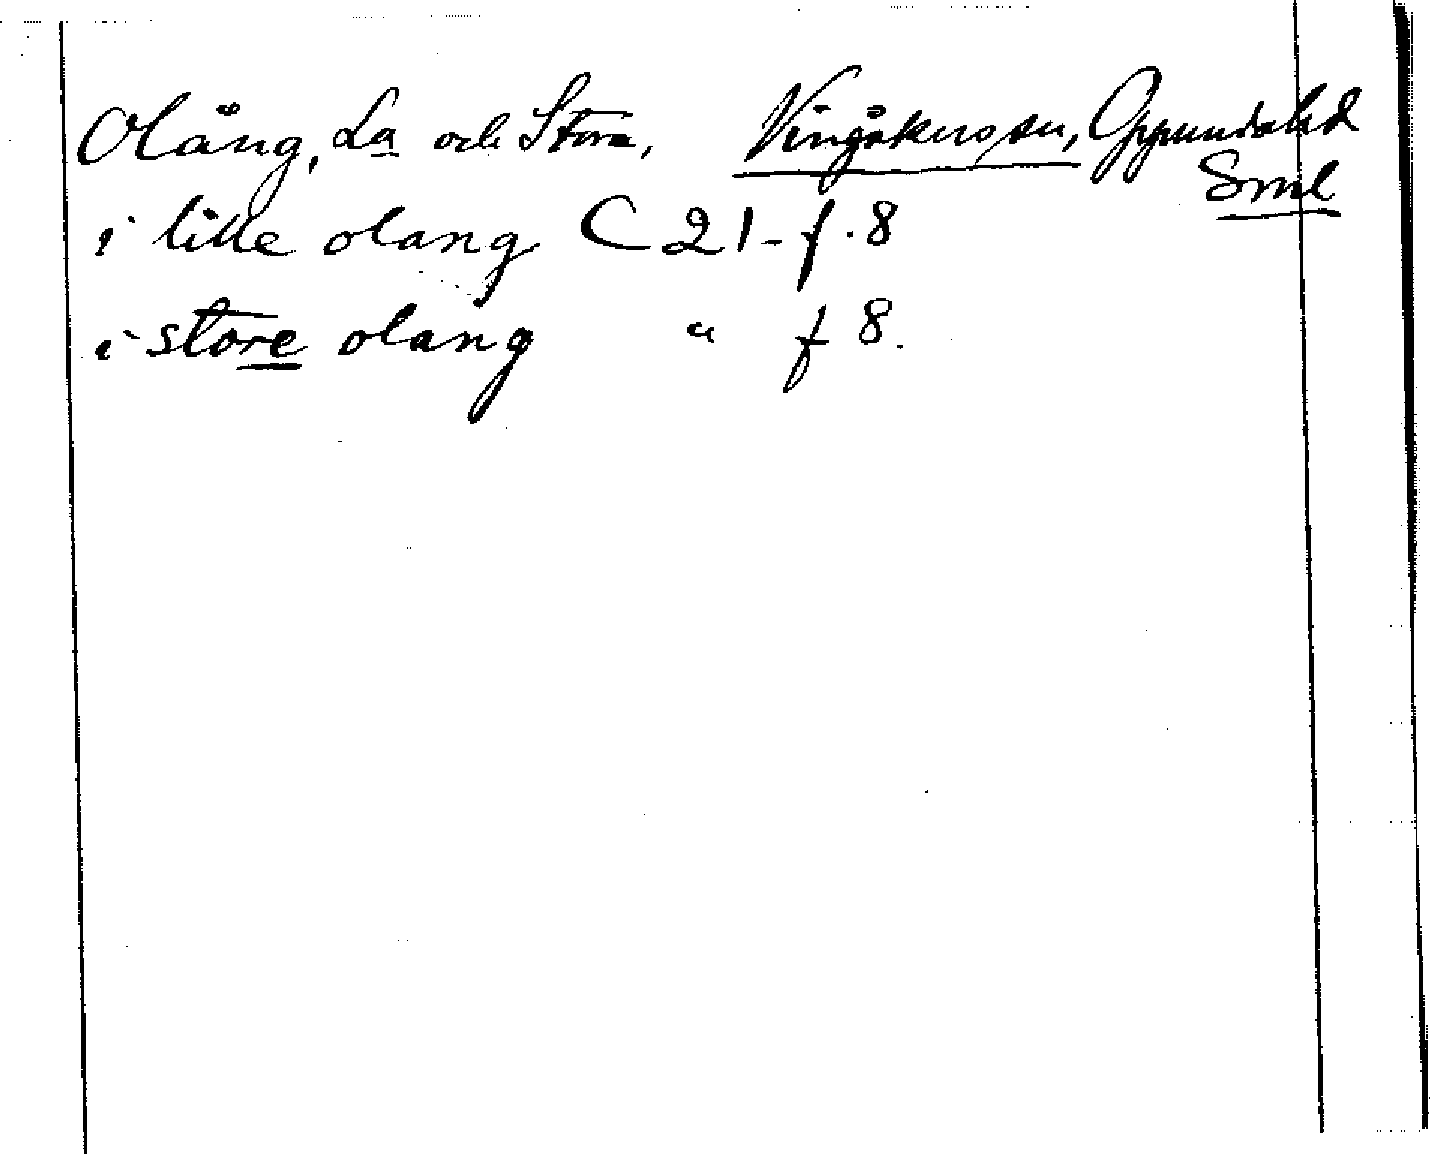 Oläng, La och Stora, Vingåkers sn, Oppunda hd
Sml
i litle olang C 21 - f. 8
i store olang " f 8.